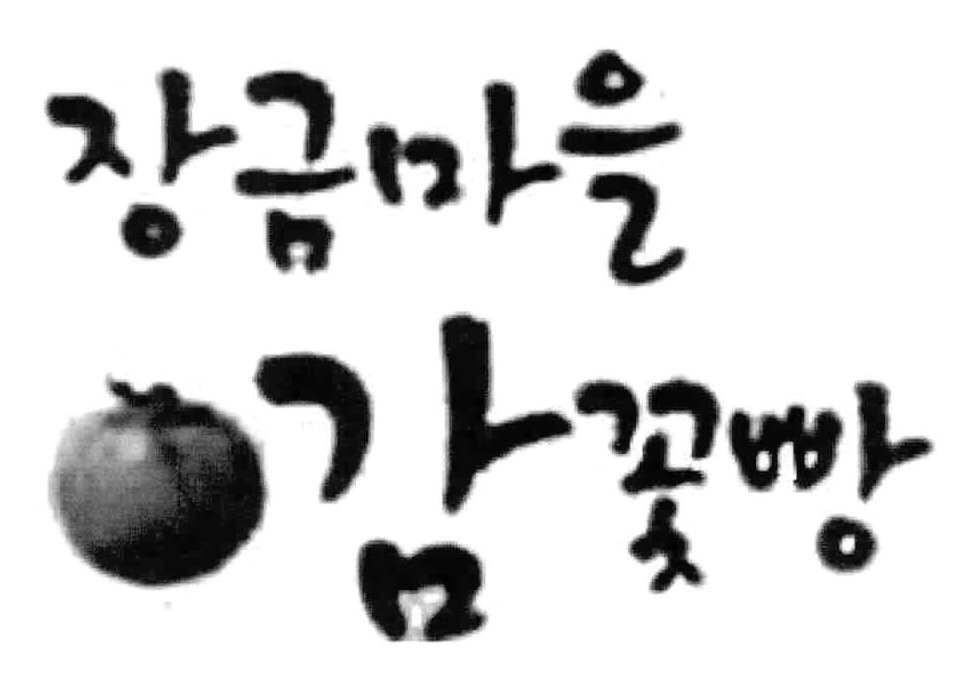 장금마을
감꽃빵